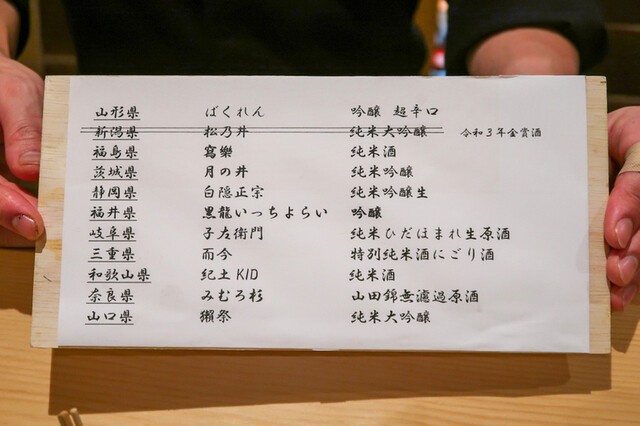 山形県 ばくれん 吟醸 超辛口
新潟県 松乃井 純米大吟醸 令和3年金賞酒
福島県 寫樂 純米酒
茨城県 月の井 純米吟醸
静岡県 白隠正宗 純米吟醸生
福井県 黒龍いっちょらい 吟醸
岐阜県 子左衛門 純米ひだほまれ生原酒
三重県 而今 特別純米酒にごり酒
和歌山県 紀土KID 純米酒
奈良県 みむろ杉 山田錦無濾過原酒
山口県 獺祭 純米大吟醸